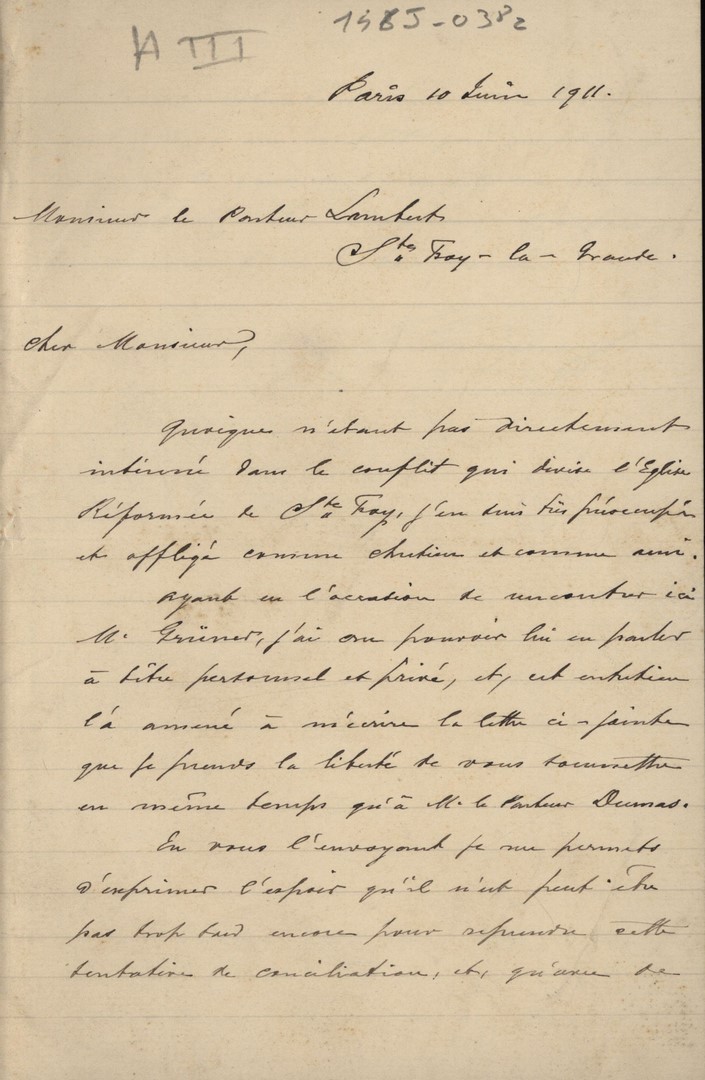 A III
1985-0382
Paris 10 Juin 1911.
Monsieur le Pasteur Lambert
Ste Foy-la-Grande.
Cher Monsieur,
Quoique n'étant pas directement
intéressé dans le conflit qui divise l'Eglise
Réformée de Ste Foy, j'en suis très préoccupé
et affligé comme chrétien et comme ami.
Ayant eu l'occasion de rencontrer ici
Mr Grüner, j'ai cru pouvoir lui en parler
à titre personnel et privé, et, cet entretien
l'a amené à m'écrire la lettre ci-jointe
que je prends la liberté de vous soumettre
en même temps qu'à Mr le Pasteur Dumas.
En vous l'envoyant je me permets
d'exprimer l'espoir qu'il n'est peut être
pas trop tard encore pour reprendre cette
tentative de conciliation, et, qu'avec de